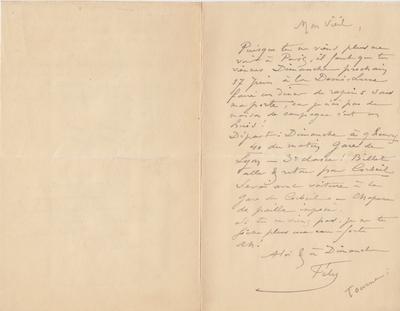 Mon Vieil,
Puisque tu ne viens plus me
voir à Paris, il faut que tu
viennes Dimanche prochain
17 Juin à la
faire un diner de rapins sous
ma porte, car je n'ai pas de
maison de campagne c'est un
Départ: Dimanche à 9 heures
40 du matin Gare de
Lyon — 3e classe! Billet
aller & retour pour Corbeil
Serai avec voiture à la
Gare de Corbeil — Chapeau
de paille imposé.
Si tu ne viens pas, je ne te
plus une eau-forte
Ah!
à Dimanche
Tournez